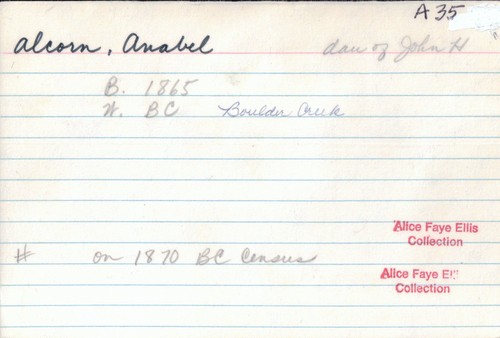 A35
Alcorn, Anabel dau of John H
B. 1865
W. BC Boulder Creek
# on 1870 BC Census
Alice Faye Ellis
Collection
Alice Faye Elli
Collection